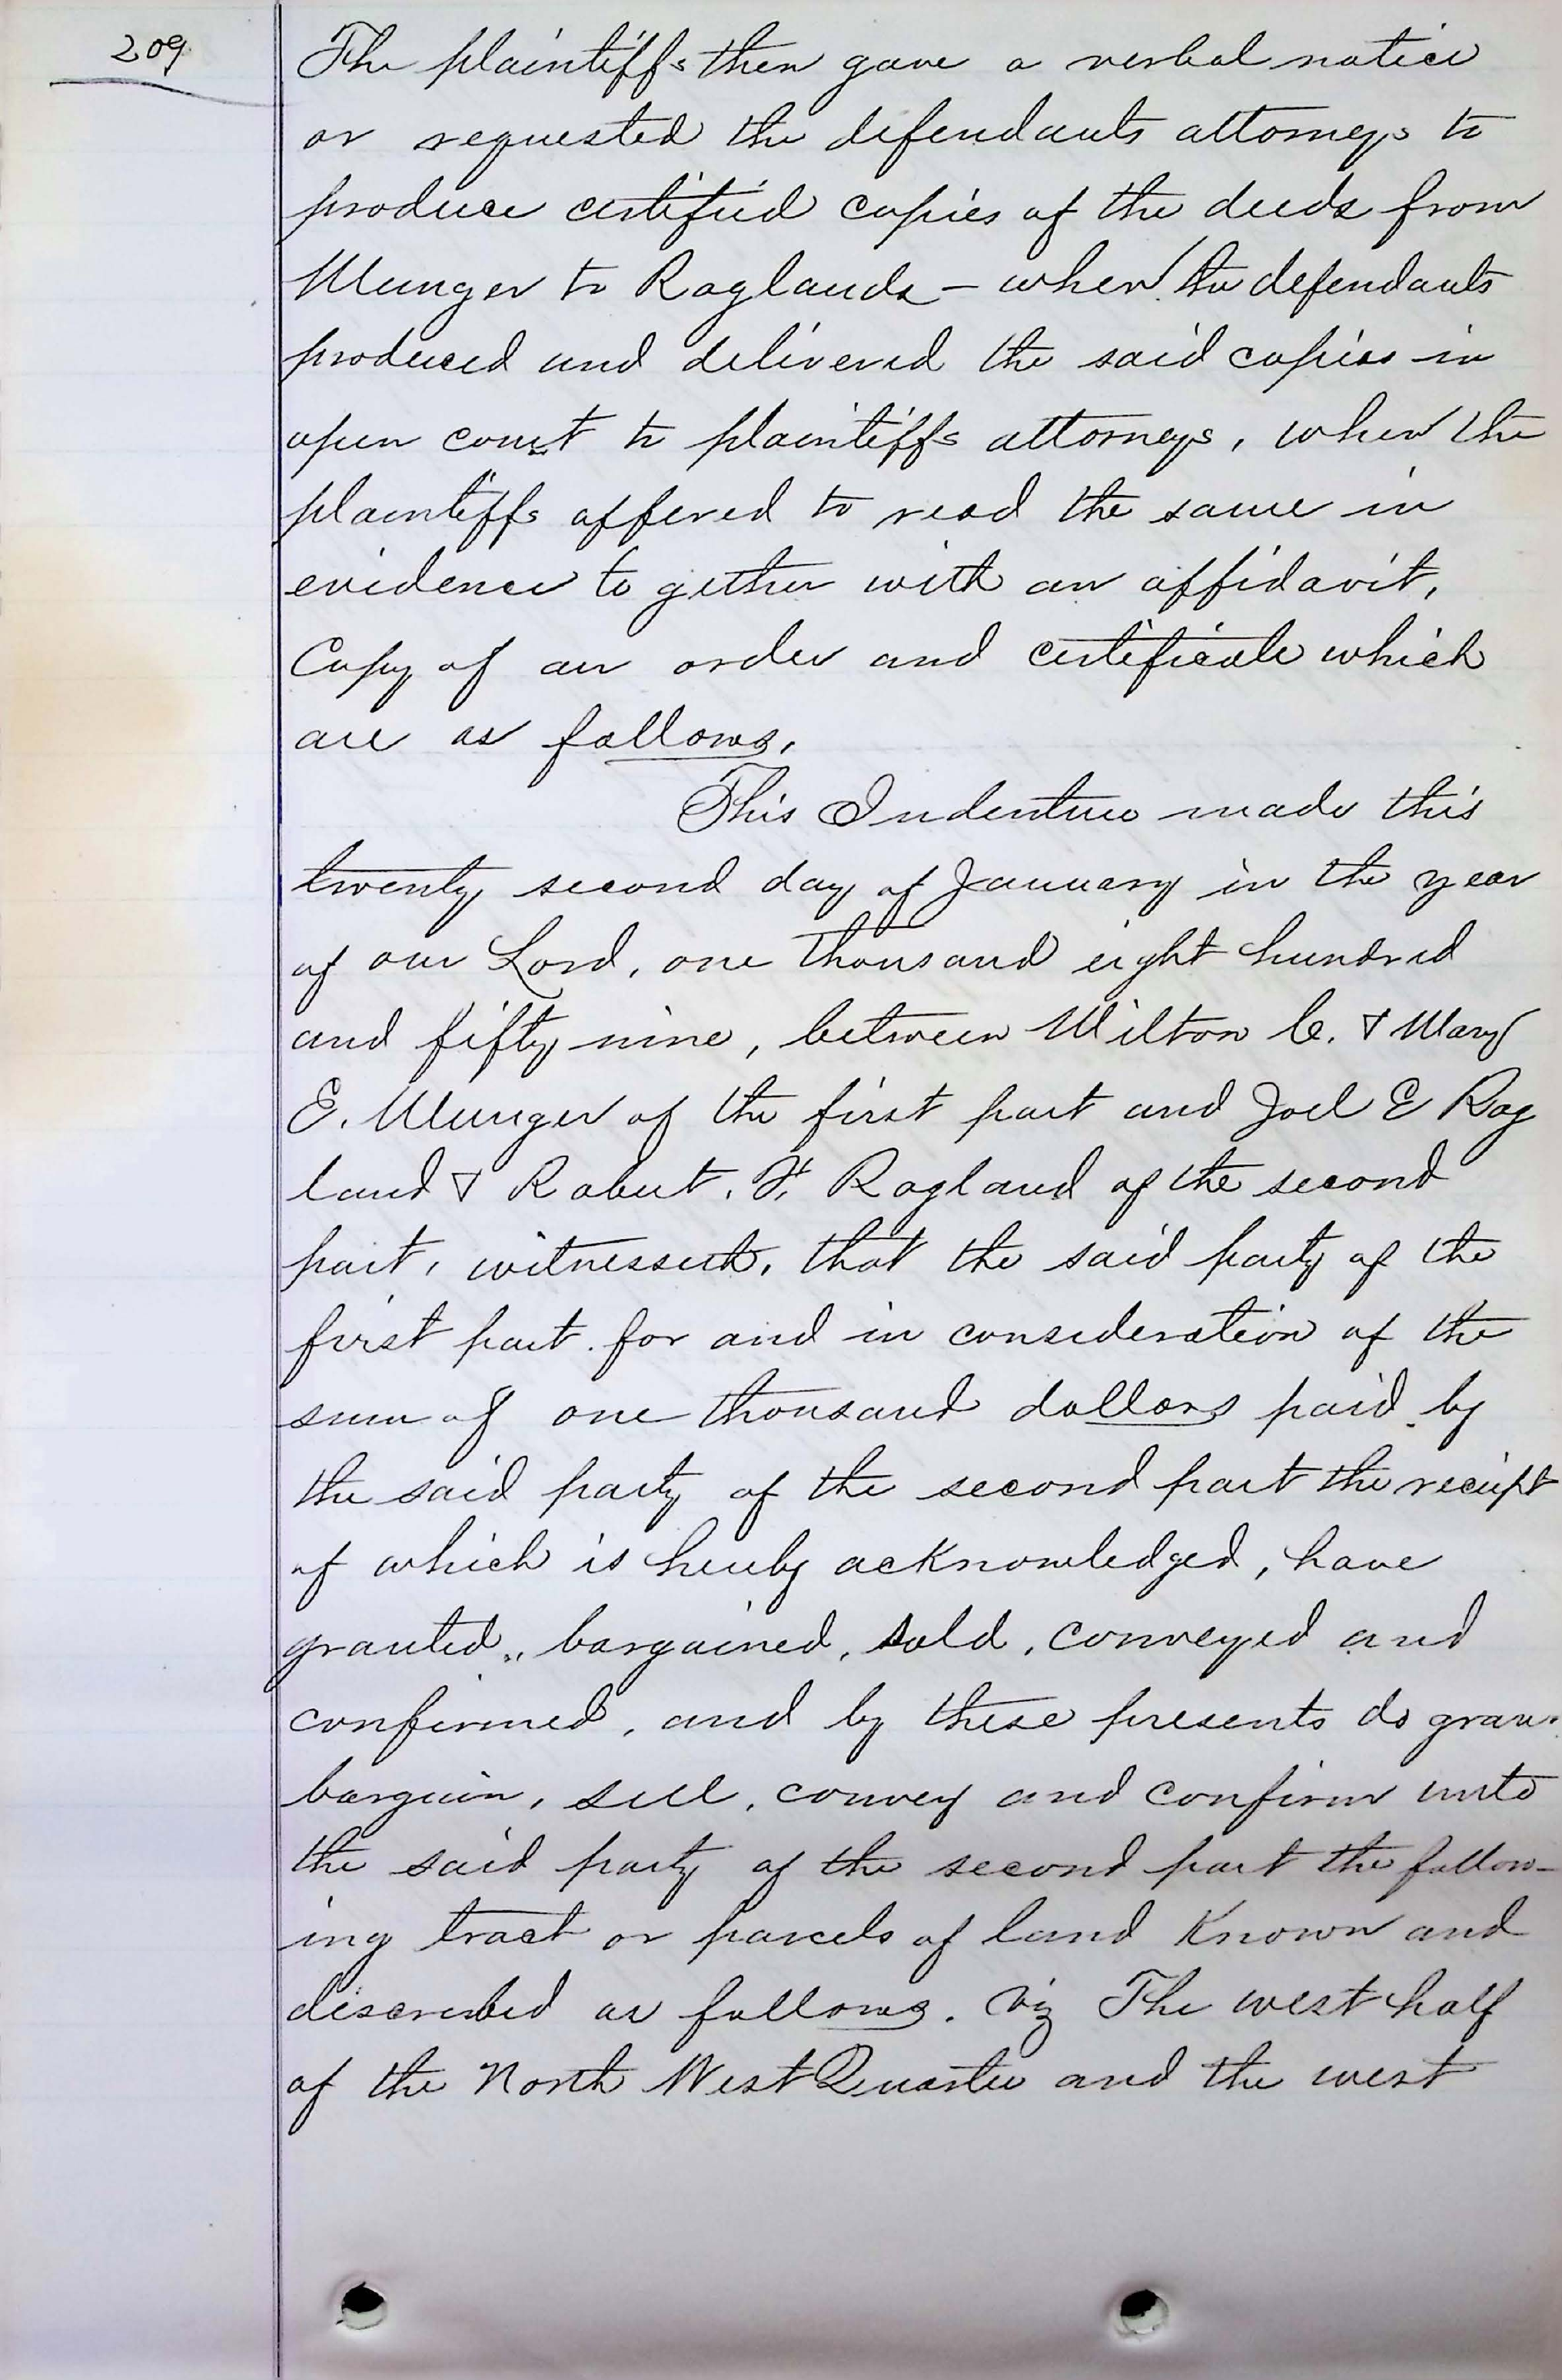 209
The plaintiffs then gave a verbal notice
or requested the defendants attorneys to
produce certified copies of the deeds from
Munger to Raglands – when the defendants
produced and delivered the said copies in
open court to plaintiffs attorneys, when the
plaintiffs offered to read the same in
evidence to gether with an affidavit,
Copy of an order and certificate which
are as follows.
This Indenture made this
twenty second day of January in the year
of our Lord, one thousand eight hundred
and fifty nine, between Milton C. & Mary
E. Munger of the first part and Joel E Rag
land & Robert. F. Ragland of the second
part, witnesseth, that the said party of the
first part. for and in consideration of the
sum of one thousand dollars paid by
the said party of the second part the receipt
of which is hereby acknowledged, have
granted, bargained, sold, conveyed and
confirmed, and by these presents do gran
bargain, sell, convey and confirm unto
the said party of the second part the follow-
ing tract or parcels of land Known and
discribed as follows. Viz The west half
of the North West Quarter and the west